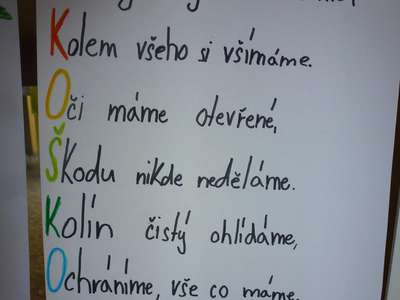 Kolem všeho si všímáme.
Oči máme otevřené,
Škodu nikde neděláme.
Kolín čistý ohlídáme,
Ochráníme, vše co máme.